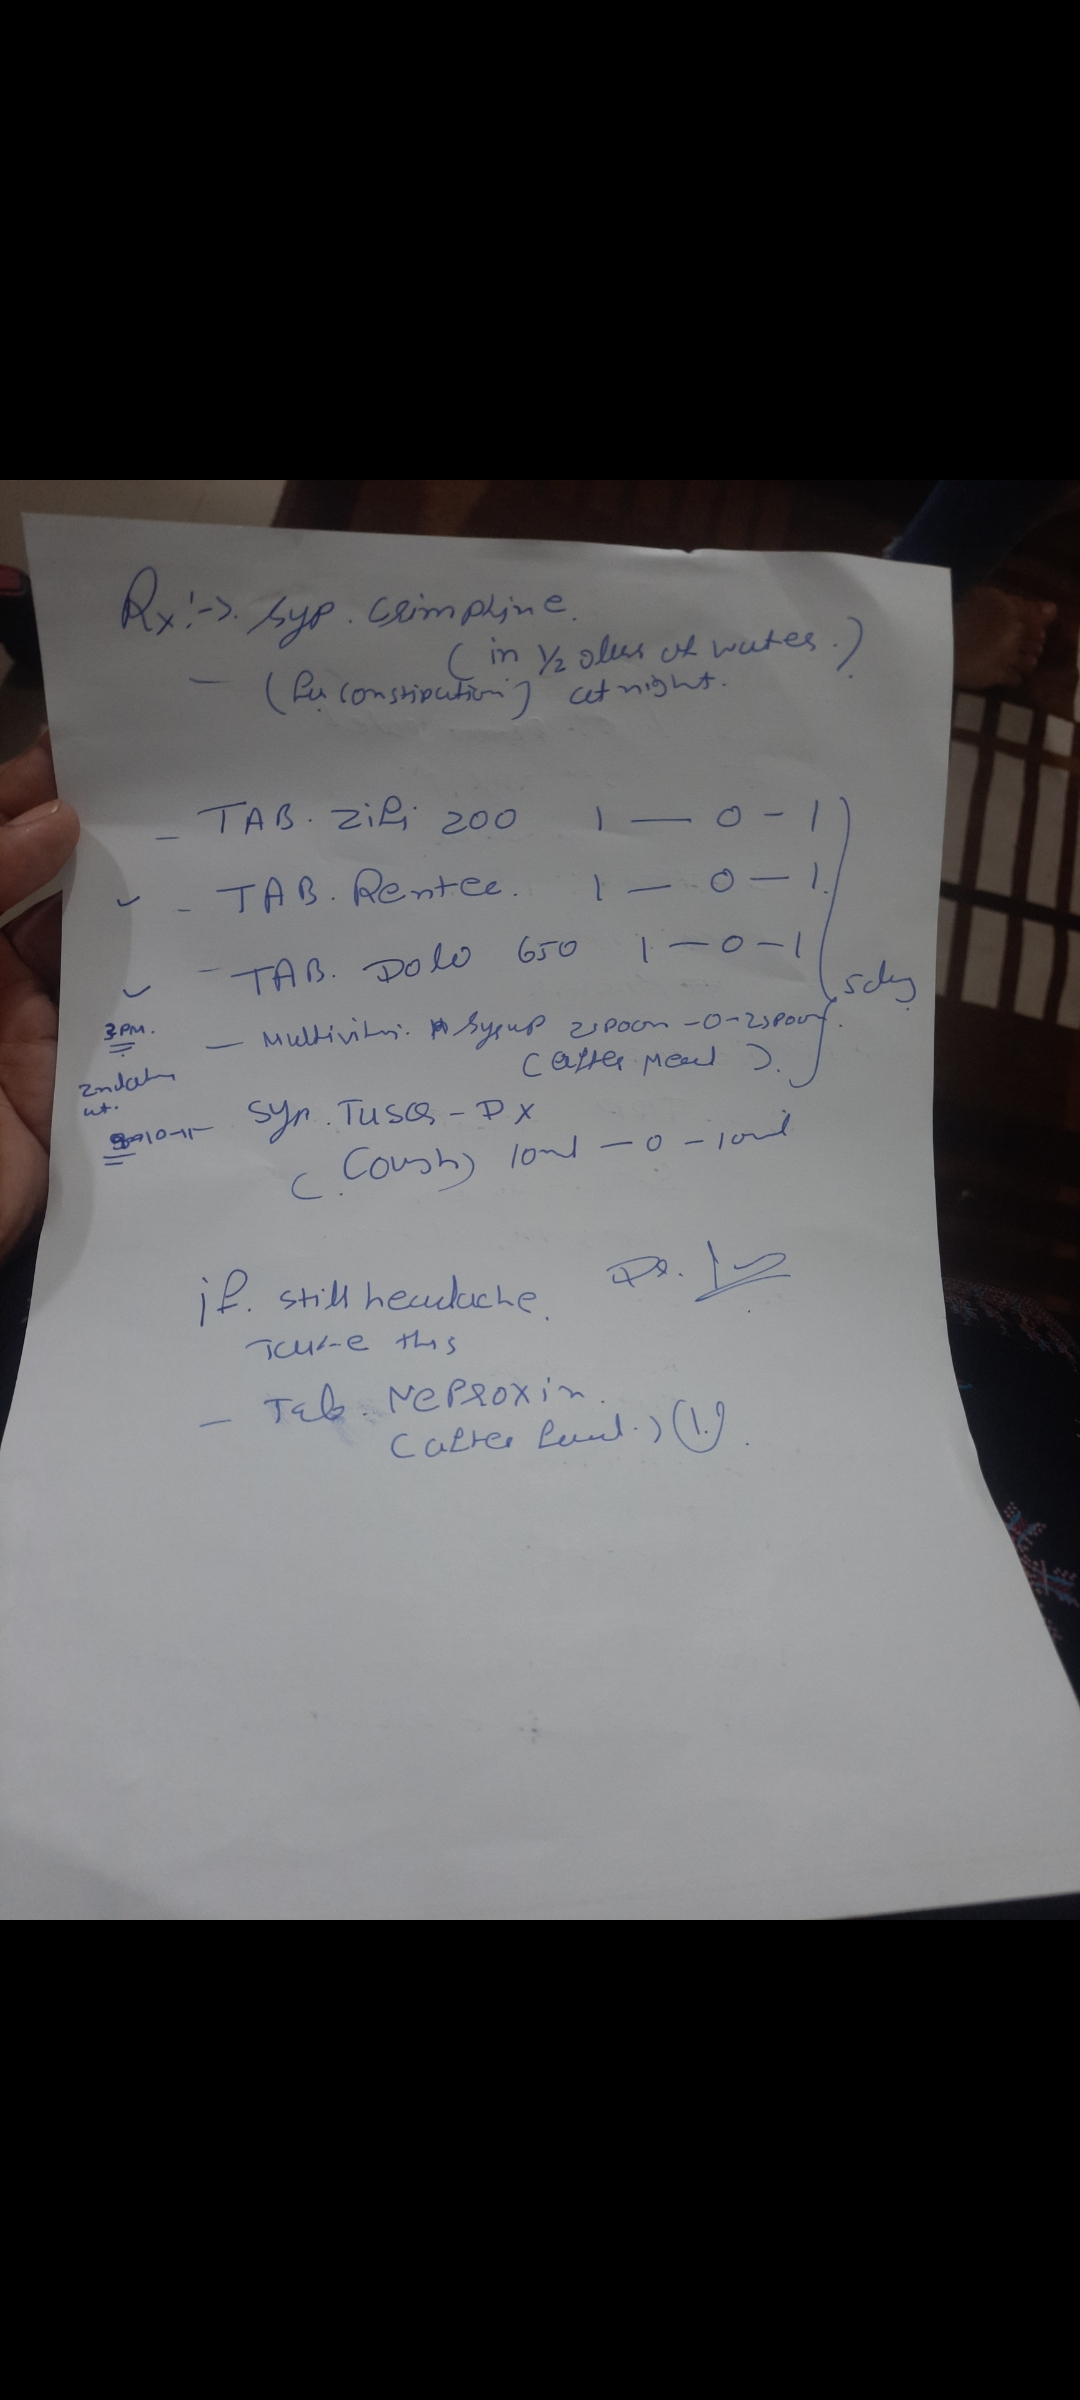 Rx :-> Syp. Crimpline.
(in 1/2 glass of water.)
- (for constipation) at night.
- TAB. Zifi 200 1 — 0 - 1
- TAB. Rentec. 1 — 0 — 1.
- TAB. Dolo 650 1 — 0 — 1
5 day
3 PM.
- Multivitmi. Syrup 2spoon - 0 - 2spoon.
(after meal).
at.
10-11
Syp. TUSQ - DX
(Cough) 10ml — 0 - 10ml
if. still headache. Dr.
Take this
- Tab. Neproxin.
(after food.) (1.)